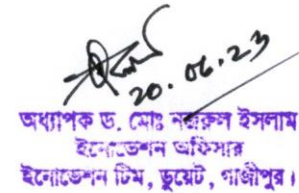 20.06.23
অধ্যাপক ড. মোঃ নজরুল ইসলাম
ইনোভেশন অফিসার
ইনোভেশন টিম, ডুয়েট, গাজীপুর।